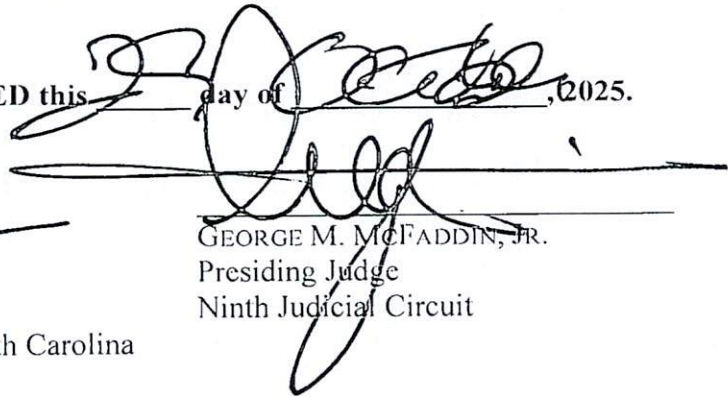 ED this day of October, 2025.
GEORGE M. MCFADDIN, JR.
Presiding Judge
Ninth Judicial Circuit
th Carolina